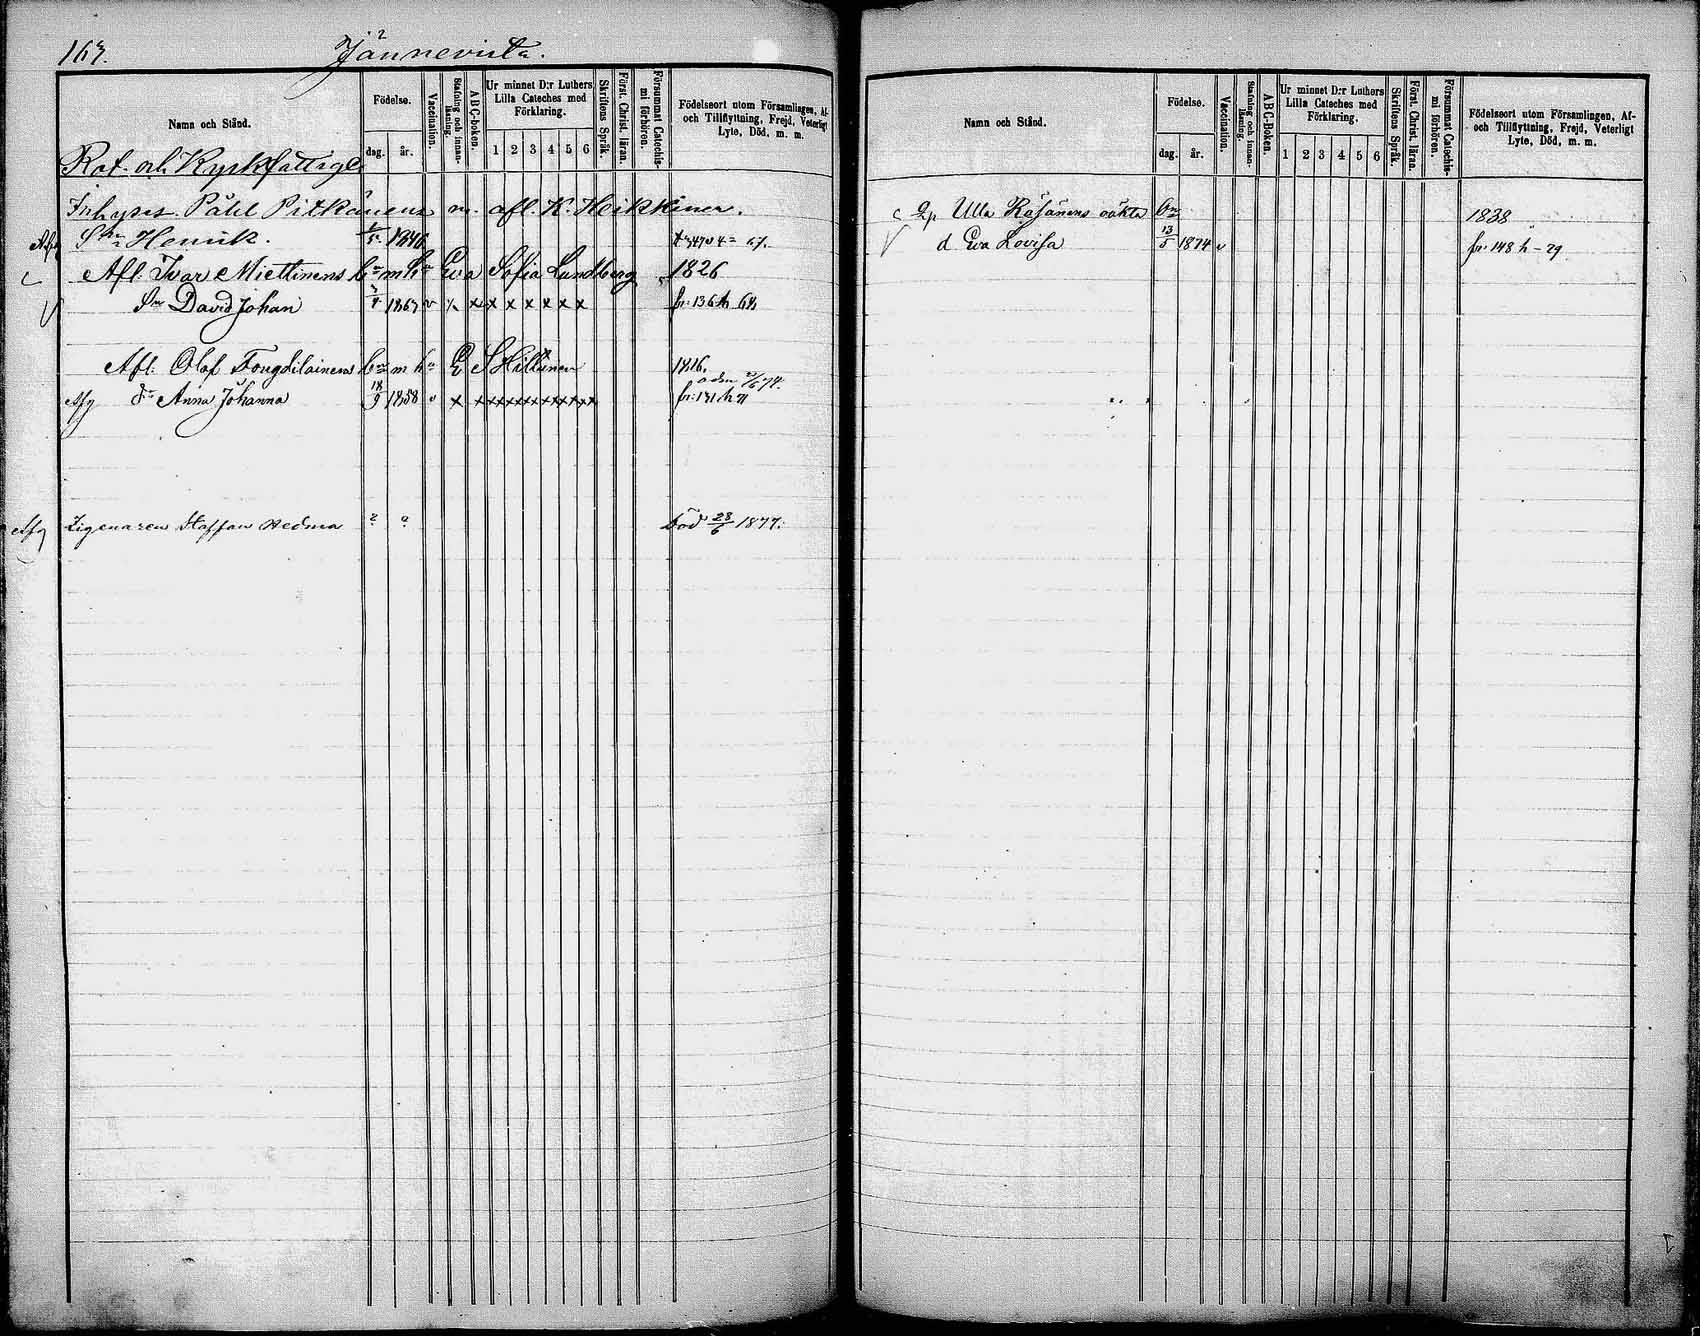 163.
Jännevirta.
Namn och Stånd.
Födelse.
dag.
år.
Vaccination.
Stafning och innanläsning.
A B C-boken.
Ur minnet D:r Luthers Lilla Cateches med Förklaring.
1 2 3 4 5 6
Skriftens Språk.
Först. Christ. läran.
Försummat Catechismi förhören.
Födelseort utom Församlingen, Af- och Tillflyttning, Frejd, Veterligt Lyte, Död, m. m.
Rot- och Kyrkfattige
Inhyses. Påhl Pitkänens m. afl. K. Heikkinen.
Sn Henrik. 1846
Afl. Ivar Miettinens bn m hn Eva Sofia Lundberg 1826
Sn David Johan 1863 v x x x x x x x x fr. 136 h 64
Afl. Olof Fougdilainens bn m hn E S Hiltunen 1816.
Afg dr Anna Johanna 18/9 1858 v x xxxxxxxxxxxx fr. 191 h 71
Afg Zigenaren Staffan Hedman ? ? Död 28/6 1877.
Namn och Stånd.
Födelse.
dag.
år.
Vaccination.
Stafning och innanläsning.
A B C-Boken.
Ur minnet D:r Luthers Lilla Cateches med Förklaring.
1 2 3 4 5 6
Skriftens Språk.
Först. Christ. läran.
Försummat Catechismi förhören.
Födelseort utom Församlingen, Af- och Tillflyttning, Frejd, Veterligt Lyte, Död, m. m.
Qp Ulla Räsänens oäkta bn 1838
d Eva Lovisa 13/5 1874 v fr. 148 h - 29